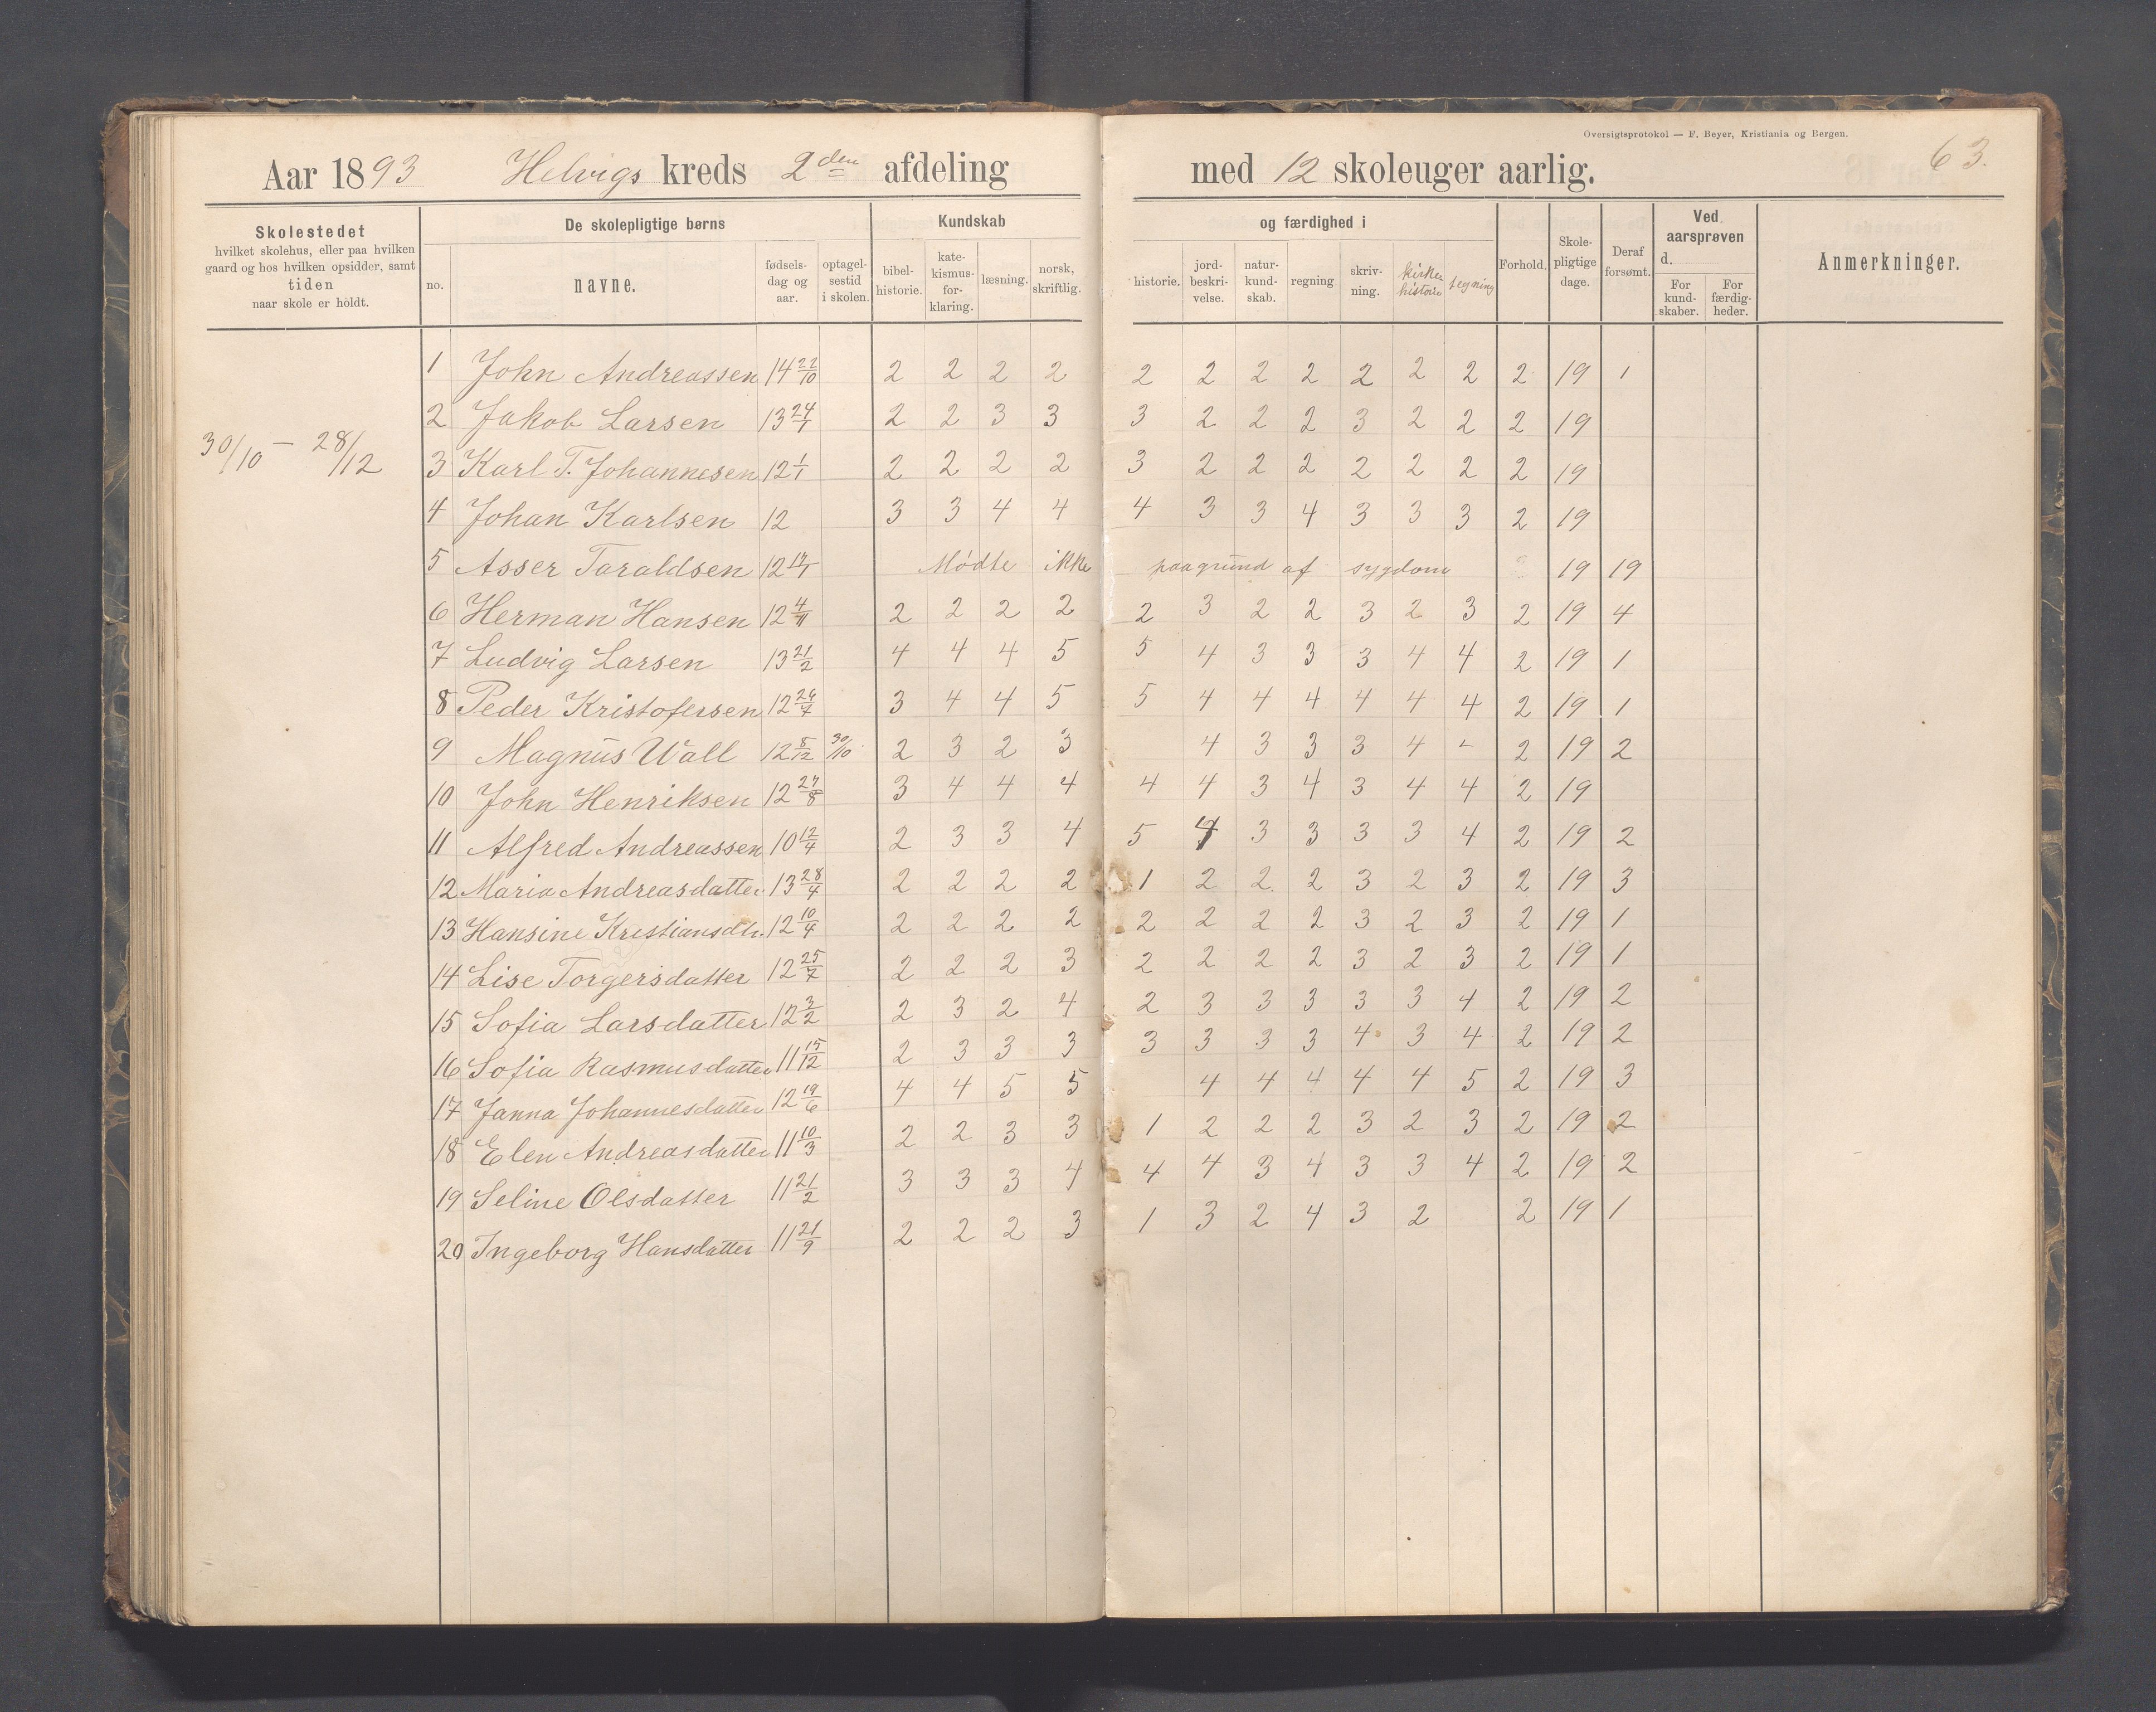 Oversigtsprotokol — F. Beyer, Kristiania og Bergen.
63.
Aar 1893 Helvigs kreds 2den afdeling med 12 skoleuger aarlig.
Skolestedet hvilket skolehus, eller paa hvilken gaard og hos hvilken opsidder, samt tiden naar skole er holdt.
De skolepligtige børns
no. navne. fødsels-dag og aar. optagel-sestid i skolen.
Kundskab og færdighed i
bibel-historie. kate-kismus-for-klaring. læsning. norsk, skriftlig. historie. jord-beskri-velse. natur-kund-skab. regning skriv-ning. kirke historie tegning
Forhold. Skole-pligtige dage. Deraf forsømt.
Ved aarsprøven d. For kund-skaber. For færdig-heder.
Anmerkninger.
30/10 — 28/12
1 John Andreassen 14 22/10 2 2 2 2 2 2 2 2 2 2 2 2 19 1
2 Jakob Larsen 13 24/1 2 2 3 3 3 2 2 2 3 2 2 2 19
3 Karl T. Johannesen 12 1/1 2 2 2 2 3 2 2 2 2 2 2 2 19
4 Johan Karlsen 12 3 3 4 4 4 3 3 4 3 3 3 2 19
5 Asser Taraldsen 12 17/1 Mødte ikke paagrund af sygdom 19 19
6 Herman Hansen 12 4/11 2 2 2 2 2 3 2 2 3 2 3 2 19 4
7 Ludvig Larsen 13 21/2 4 4 4 5 5 4 3 3 3 4 4 2 19 1
8 Peder Kristofersen 12 29/4 3 4 4 5 5 4 4 4 4 4 4 2 19 1
9 Magnus Wall 12 8/12 30/10 2 3 2 3 4 3 3 3 4 - 2 19 2
10 John Henriksen 12 27/8 3 4 4 4 4 4 3 4 3 4 4 2 19
11 Alfred Andreassen 10 12/4 2 3 3 4 5 4 3 3 3 3 4 2 19 2
12 Maria Andreasdatter 13 28/4 2 2 2 2 1 2 2 2 3 2 3 2 19 3
13 Hansine Kristiansdtr. 12 10/4 2 2 2 2 2 2 2 2 3 2 3 2 19 1
14 Lise Torgersdatter 12 25/7 2 2 2 3 2 2 2 2 3 2 3 2 19 1
15 Sofia Larsdatter 12 3/2 2 3 2 4 2 3 3 3 3 3 4 2 19 2
16 Sofia Rasmusdatter 11 15/12 2 3 3 3 3 3 3 3 4 3 4 2 19 2
17 Janna Johannesdatter 12 19/6 4 4 5 5 4 4 4 4 4 5 2 19 3
18 Elen Andreasdatter 11 10/3 2 2 3 3 1 2 2 2 3 2 3 2 19 2
19 Seline Olsdatter 11 21/2 3 3 3 4 4 4 3 4 3 3 4 2 19 2
20 Ingeborg Hansdatter 11 21/9 2 2 2 3 1 3 2 4 3 2 2 19 1